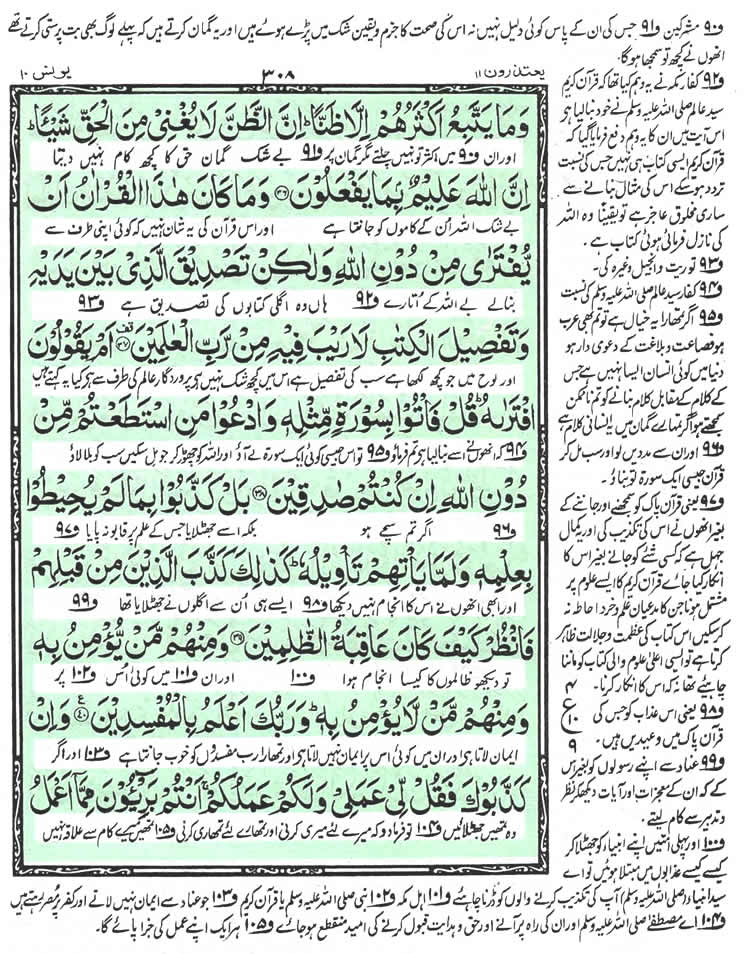 ف۹۰ مشرکین ف۹۱ جس کی ان کے پاس کوئی دلیل نہیں نہ اس کی صحت کا جزم و یقین شک میں پڑے ہوئے ہیں اور یہ گمان کرتے ہیں کہ پہلے لوگ بھی بت پرستی کرتے تھے
انھوں نے کچھ تو سمجھا ہوگا۔
یونس ۱۰
۳۰۸
یعتذرون ۱۱
وَمَا يَتَّبِعُ اَكْثَرُهُمْ اِلَّا ظَنًّا ؕ اِنَّ الظَّنَّ لَا يُغْنِىْ مِنَ الْحَقِّ شَيْـًٔا ؕ
اور ان ف۹۰ میں اکثر تو نہیں چلتے مگر گمان پر ف۹۱ بے شک گمان حق کا کچھ کام نہیں دیتا
اِنَّ اللّٰهَ عَلِيْمٌۢ بِمَا يَفْعَلُوْنَ ۳۶ وَمَا كَانَ هٰذَا الْقُرْاٰنُ اَنْ
بے شک اللہ اُن کے کاموں کو جانتا ہے اور اس قرآن کی یہ شان نہیں کہ کوئی اپنی طرف سے
يُّفْتَرٰى مِنْ دُوْنِ اللّٰهِ وَلٰكِنْ تَصْدِيْقَ الَّذِىْ بَيْنَ يَدَيْهِ
بنالے بے اللہ کے اُتارے ف۹۲ ہاں وہ اگلی کتابوں کی تصدیق ہے ف۹۳
وَتَفْصِيْلَ الْكِتٰبِ لَا رَيْبَ فِيْهِ مِنْ رَّبِّ الْعٰلَمِيْنَ ۳۷ اَمْ يَقُوْلُوْنَ
اور لوح میں جو کچھ لکھا ہے سب کی تفصیل ہے اس میں کچھ شک نہیں ہے پروردگار عالم کی طرف سے ہے کیا یہ کہتے ہیں
افْتَرٰىهُ ؕ قُلْ فَاْتُوْا بِسُوْرَةٍ مِّثْلِهٖ وَادْعُوْا مَنِ اسْتَطَعْتُمْ مِّنْ
ف۹۴ کہ انھوں نے اسے بنالیا ہے تم فرماؤ ف۹۵ تو اس جیسی کوئی ایک سورۃ لے آؤ اور اللہ کو چھوڑ کر جو مل سکیں سب کو بلا لاؤ
دُوْنِ اللّٰهِ اِنْ كُنْتُمْ صٰدِقِيْنَ ۳۸ بَلْ كَذَّبُوْا بِمَا لَمْ يُحِيْطُوْا
ف۹۶ اگر تم سچے ہو بلکہ اسے جھٹلایا جس کے علم پر قابو نہ پایا ف۹۷
بِعِلْمِهٖ وَلَمَّا يَاْتِهِمْ تَاْوِيْلُهٗ ؕ كَذٰلِكَ كَذَّبَ الَّذِيْنَ مِنْ قَبْلِهِمْ
اور ابھی انھوں نے اس کا انجام نہیں دیکھا ف۹۸ ایسے ہی اُن سے اگلوں نے جھٹلایا تھا ف۹۹
فَانْظُرْ كَيْفَ كَانَ عَاقِبَةُ الظّٰلِمِيْنَ ۳۹ وَمِنْهُمْ مَّنْ يُّؤْمِنُ بِهٖ
تو دیکھو ظالموں کا کیسا انجام ہوا ف۱۰۰ اور ان ف۱۰۱ میں کوئی اُس ف۱۰۲ پر
وَمِنْهُمْ مَّنْ لَّا يُؤْمِنُ بِهٖ ؕ وَرَبُّكَ اَعْلَمُ بِالْمُفْسِدِيْنَ ۴۰ ع وَاِنْ
ایمان لاتا ہے اور ان میں کوئی اس پر ایمان نہیں لاتا ہے اور تمھارا رب مفسدوں کو خوب جانتا ہے ف۱۰۳ اور اگر
كَذَّبُوْكَ فَقُلْ لِّىْ عَمَلِىْ وَلَكُمْ عَمَلُكُمْ ۚ اَنْتُمْ بَرِيْٓـُٔوْنَ مِمَّاۤ اَعْمَلُ
وہ تمھیں جھٹلائیں ف۱۰۴ تو فرمادو کہ میرے لئے میری کرنی اور تمھارے لئے تمھاری کرنی ف۱۰۵ تمھیں میرے کام سے علاقہ نہیں
ف۹۲ کفار مکہ نے یہ وہم کیا تھا کہ قرآن کریم
سید عالم صلی اللہ علیہ وسلم نے خود بنالیا ہے
اس آیت میں ان کا یہ وہم دفع فرمایا گیا کہ
قرآن کریم ایسی کتاب ہی نہیں جس کی نسبت
تردد ہوسکے اس کی مثال بنانے سے
ساری مخلوق عاجز ہے تو یقیناً وہ اللہ
کی نازل فرمائی ہوئی کتاب ہے۔
ف۹۳ توریت و انجیل وغیرہ کی۔
ف۹۴ کفار سید عالم صلی اللہ علیہ وسلم کی نسبت
ف۹۵ اگر تمھارا یہ خیال ہے تو تم بھی عرب
ہو فصاحت و بلاغت کے دعوی دار ہو
دنیا میں کوئی انسان ایسا نہیں ہے جس
کے کلام کے مقابل کلام بنانے کو تم ناممکن
سمجھتے ہو اگر تمھارے گمان میں یہ انسانی کلام ہے
ف۹۶ اور ان سے مدد یں لو اور سب مل کر
قرآن جیسی ایک سورۃ تو بناؤ۔
ف۹۷ یعنی قرآن پاک کو سمجھنے اور جاننے کے
بغیر انھوں نے اس کی تکذیب کی اور یہ کمال
جہل ہے کہ کسی شئے کو جانے بغیر اس کا
انکار کیا جائے قرآن کریم کا ایسے علوم پر
مشتمل ہونا جن کا مدعیان علم و خرد احاطہ نہ
کرسکیں اس کتاب کی عظمت و جلالت ظاہر
کرتا ہے تو ایسی اعلیٰ علوم والی کتاب کو ماننا
چاہئے تھا نہ کہ اس کا انکار کرنا۔
۴
ع
۱۰
۹
ف۹۸ یعنی اس عذاب کو جس کی
قرآن پاک میں وعیدیں ہیں۔
ف۹۹ عناد سے اپنے رسولوں کو بغیر اس
کے کہ ان کے معجزات اور آیات دیکھ کر نظر
و تدبر سے کام لیتے۔
ف۱۰۰ اور پہلی امتیں اپنے انبیاء کو جھٹلا کر
کیسے کیسے عذابوں میں مبتلا ہوئیں تو اے
سید انبیاء (صلی اللہ علیہ وسلم) آپ کی تکذیب کرنے والوں کو ڈرنا چاہئے ف۱۰۱ اہل مکہ ف۱۰۲ نبی صلی اللہ علیہ وسلم یا قرآن کریم ف۱۰۳ جو عناد سے ایمان نہیں لاتے اور کفر پر مصر رہتے ہیں
ف۱۰۴ اے مصطفےٰ صلی اللہ علیہ وسلم اور ان کی راہ پر آنے اور حق و ہدایت قبول کرنے کی امید منقطع ہوجائے ف۱۰۵ ہر ایک اپنے عمل کی جزا پائے گا۔